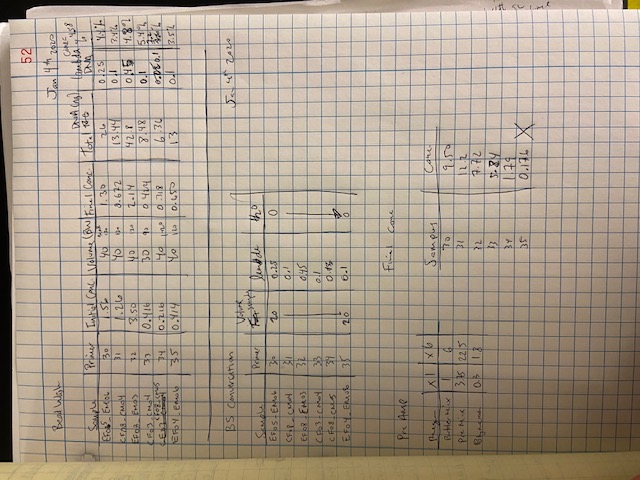 52
Bead Wash
Jan 4th 2020
Sample Primer Initial Conc. Volume Final Conc. Total DNA (ng) lambda DNA conc
EF05_EM06 30 1.56 40 1.30 26 0.25 4.4%
CF08_CM04 31 1.26 40 0.672 13.44 0.1 3.4%
EF08_EM03 32 3.50 40 120 2.14 42.8 0.45 4.8%
CF03_CM04 33 0.416 30 90 0.424 8.48 0.1 5.4%
CF08_CM05 34 0.216 40 0.318 6.36 0.1
EF04_EM06 35 0.414 40 120 0.650 13 0.1 3.5%
BS Conversation
Jan 4th 2020
Sample Primer Volume Sample lambda H2O
EF05-EM06 30 20 0.25 0
CF08_CM04 31 0.1
EF08_EM03 32 0.45
CF03-CM04 33 0.1
CF08_CM05 34
EF04_EM06 35 20 0.1 0
Final Conc
Pre Amp
x1 x6
Buffer Mix 1 6
Pre Mix 3.75 22.5
0.3 1.8
Samples Conc
30 9.50
31 12.2
32 7.72
33 5.84
34 1.79
35 0.176 X